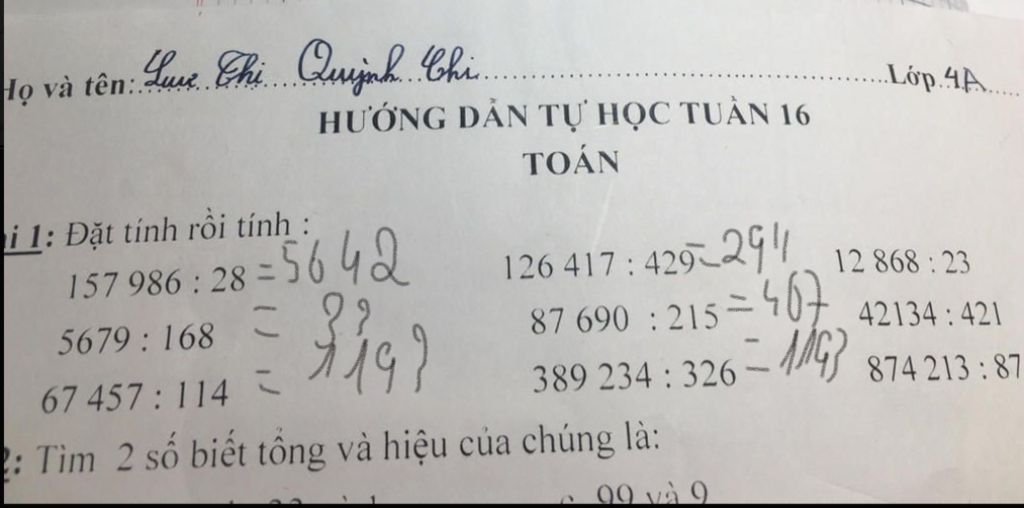 Họ và tên: Lưu Thị Quỳnh Chi Lớp 4A
HƯỚNG DẪN TỰ HỌC TUẦN 16
TOÁN
i 1: Đặt tính rồi tính :
157 986 : 28 = 5642 126 417 : 429 = 294 12 868 : 23
5679 : 168 = 33 87 690 : 215 = 407 42134 : 421
67 457 : 114 = 389 234 : 326 = 1193 874 213 : 87
1193
2: Tìm 2 số biết tổng và hiệu của chúng là:
99 và 9